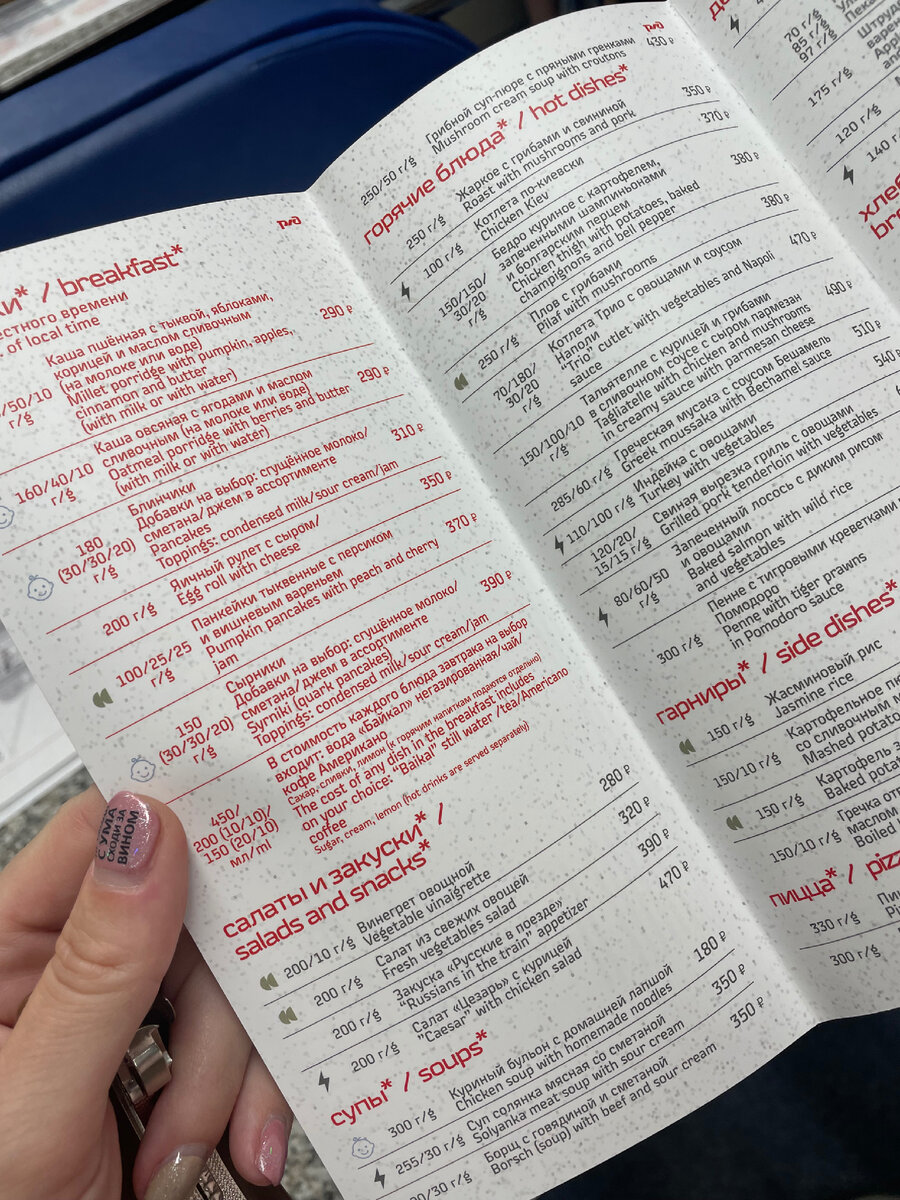 ки* / breakfast*
естного времени
. of local time
Каша пшённая с тыквой, яблоками,
корицей и маслом сливочным
(на молоке или воде)
Millet porridge with pumpkin, apples,
cinnamon and butter
(with milk or with water)
/50/10
г/g
290 ₽
Каша овсяная с ягодами и маслом
сливочным (на молоке или воде)
Oatmeal porridge with berries and butter
(with milk or with water)
160/40/10
г/g
290 ₽
Блинчики
Добавки на выбор: сгущённое молоко/
сметана/джем в ассортименте
Pancakes
Toppings: condensed milk/sour cream/jam
180
(30/30/20)
г/g
310 ₽
Яичный рулет с сыром/
Egg roll with cheese
200 г/g
350 ₽
Панкейки тыквенные с персиком
и вишневым вареньем
Pumpkin pancakes with peach and cherry
jam
100/25/25
г/g
370 ₽
Сырники
Добавки на выбор: сгущённое молоко/
сметана/джем в ассортименте
Syrniki (quark pancakes)
Toppings: condensed milk/sour cream/jam
150
(30/30/20)
г/g
390 ₽
В стоимость каждого блюда завтрака на выбор
входит: вода «Байкал» негазированная/чай/
кофе Американо
Сахар, сливки, лимон (к горячим напиткам подаются отдельно)
The cost of any dish in the breakfast includes
on your choice: "Baikal" still water /tea/Americano
coffee
Sugar, cream, lemon (hot drinks are served separately)
450/
200 (10/10)/
150 (20/10)
мл/ml
салаты и закуски* /
salads and snacks*
Винегрет овощной
Vegetable vinaigrette
200/10 г/g
280 ₽
Салат из свежих овощей
Fresh vegetables salad
200 г/g
320 ₽
Закуска «Русские в поезде»
"Russians in the train" appetizer
200 г/g
390 ₽
Салат «Цезарь» с курицей
"Caesar" with chicken salad
200 г/g
470 ₽
супы* / soups*
Куриный бульон с домашней лапшой
Chicken soup with homemade noodles
300 г/g
180 ₽
Суп солянка мясная со сметаной
Solyanka meat soup with sour cream
255/30 г/g
350 ₽
Борщ с говядиной и сметаной
Borsch (soup) with beef and sour cream
/30 г/g
350 ₽
Грибной суп-пюре с пряными гренками
Mushroom cream soup with croutons
250/50 г/g
430 ₽
горячие блюда* / hot dishes*
Жаркое с грибами и свининой
Roast with mushrooms and pork
250 г/g
350 ₽
Котлета по-киевски
Chicken Kiev
100 г/g
370 ₽
Бедро куриное с картофелем,
запеченными шампиньонами
и болгарским перцем
Chicken thigh with potatoes, baked
champignons and bell pepper
150/150/
30/20
г/g
380 ₽
Плов с грибами
Pilaf with mushrooms
250 г/g
380 ₽
Котлета Трио с овощами и соусом
Наполи
"Trio" cutlet with vegetables and Napoli
sauce
70/180/
30/20
г/g
470 ₽
Тальятелле с курицей и грибами
в сливочном соусе с сыром пармезан
Tagliatelle with chicken and mushrooms
in creamy sauce with parmesan cheese
150/100/10
г/g
490 ₽
Греческая мусака с соусом Бешамель
Greek moussaka with Bechamel sauce
285/60 г/g
510 ₽
Индейка с овощами
Turkey with vegetables
110/100 г/g
540
Свиная вырезка гриль с овощами
Grilled pork tenderloin with vegetables
120/20/
15/15 г/g
Запеченный лосось с диким рисом
и овощами
Baked salmon with wild rice
and vegetables
80/60/50
г/g
Пенне с тигровыми креветками
Помодоро
Penne with tiger prawns
in Pomodoro sauce
300 г/g
гарниры* / side dishes*
Жасминовый рис
Jasmine rice
150 г/g
Картофельное пю
со сливочным
Mashed potato
150/10 г/g
Картофель з
Baked pota
150 г/g
Гречка отв
маслом
Boiled
150/10 г/g
пицца* / pizz
330 г/g
300 г/g
70 г/g
85 г/g
97 г/g
Штруд
варе
Appl
175 г/g
120 г/g
140 г/g
хлеб
bre
С УМА
СХОДИ ЗА
ВИНОМ